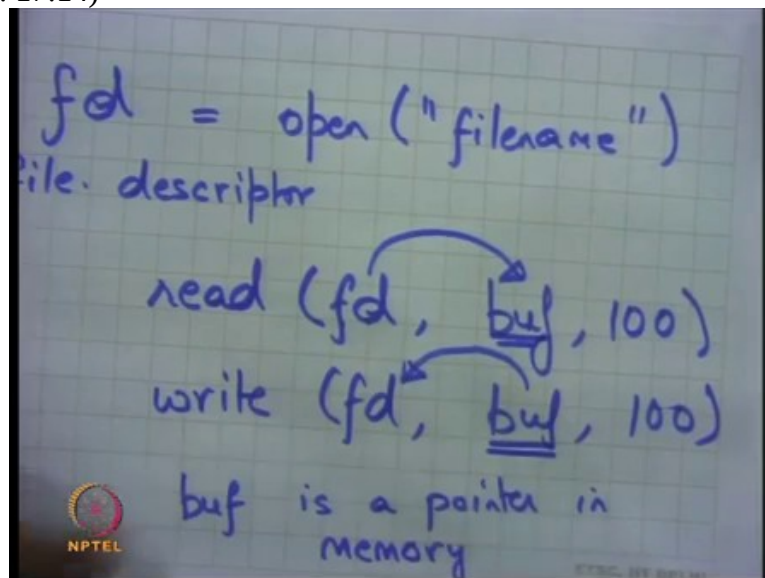 fd = open ("filename")
file. descriptor
read (fd, buf, 100)
write (fd, buf, 100)
buf is a pointer in
memory
NPTEL